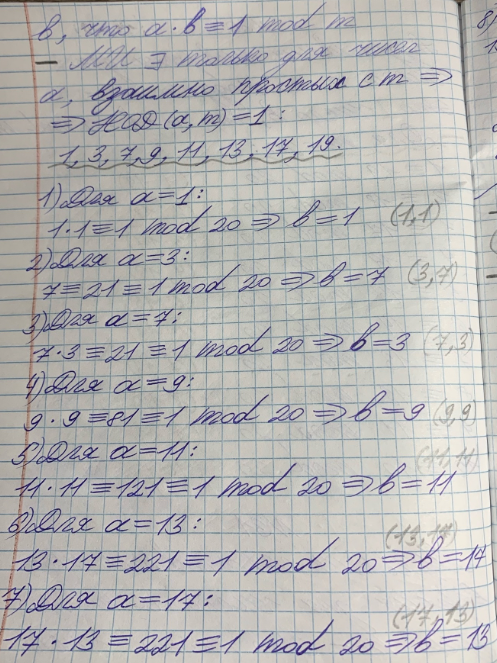 b, что a·b≡1 mod m
— МИ ∃ только для чисел
a, взаимно простых с m ⇒
⇒ НОД(a,m)=1:
1,3,7,9,11,13,17,19.
1) Для a=1:
1·1≡1 mod 20 ⇒ b=1 (1,1)
2) Для a=3:
7≡21≡1 mod 20 ⇒ b=7 (3,7)
3) Для a=7:
7·3≡21≡1 mod 20 ⇒ b=3 (7,3)
4) Для a=9:
9·9≡81≡1 mod 20 ⇒ b=9 (9,9)
5) Для a=11: (11,11)
11·11≡121≡1 mod 20 ⇒ b=11
6) Для a=13: (13,17)
13·17≡221≡1 mod 20 ⇒ b=17
7) Для a=17: (17,13)
17·13≡221≡1 mod 20 ⇒ b=13